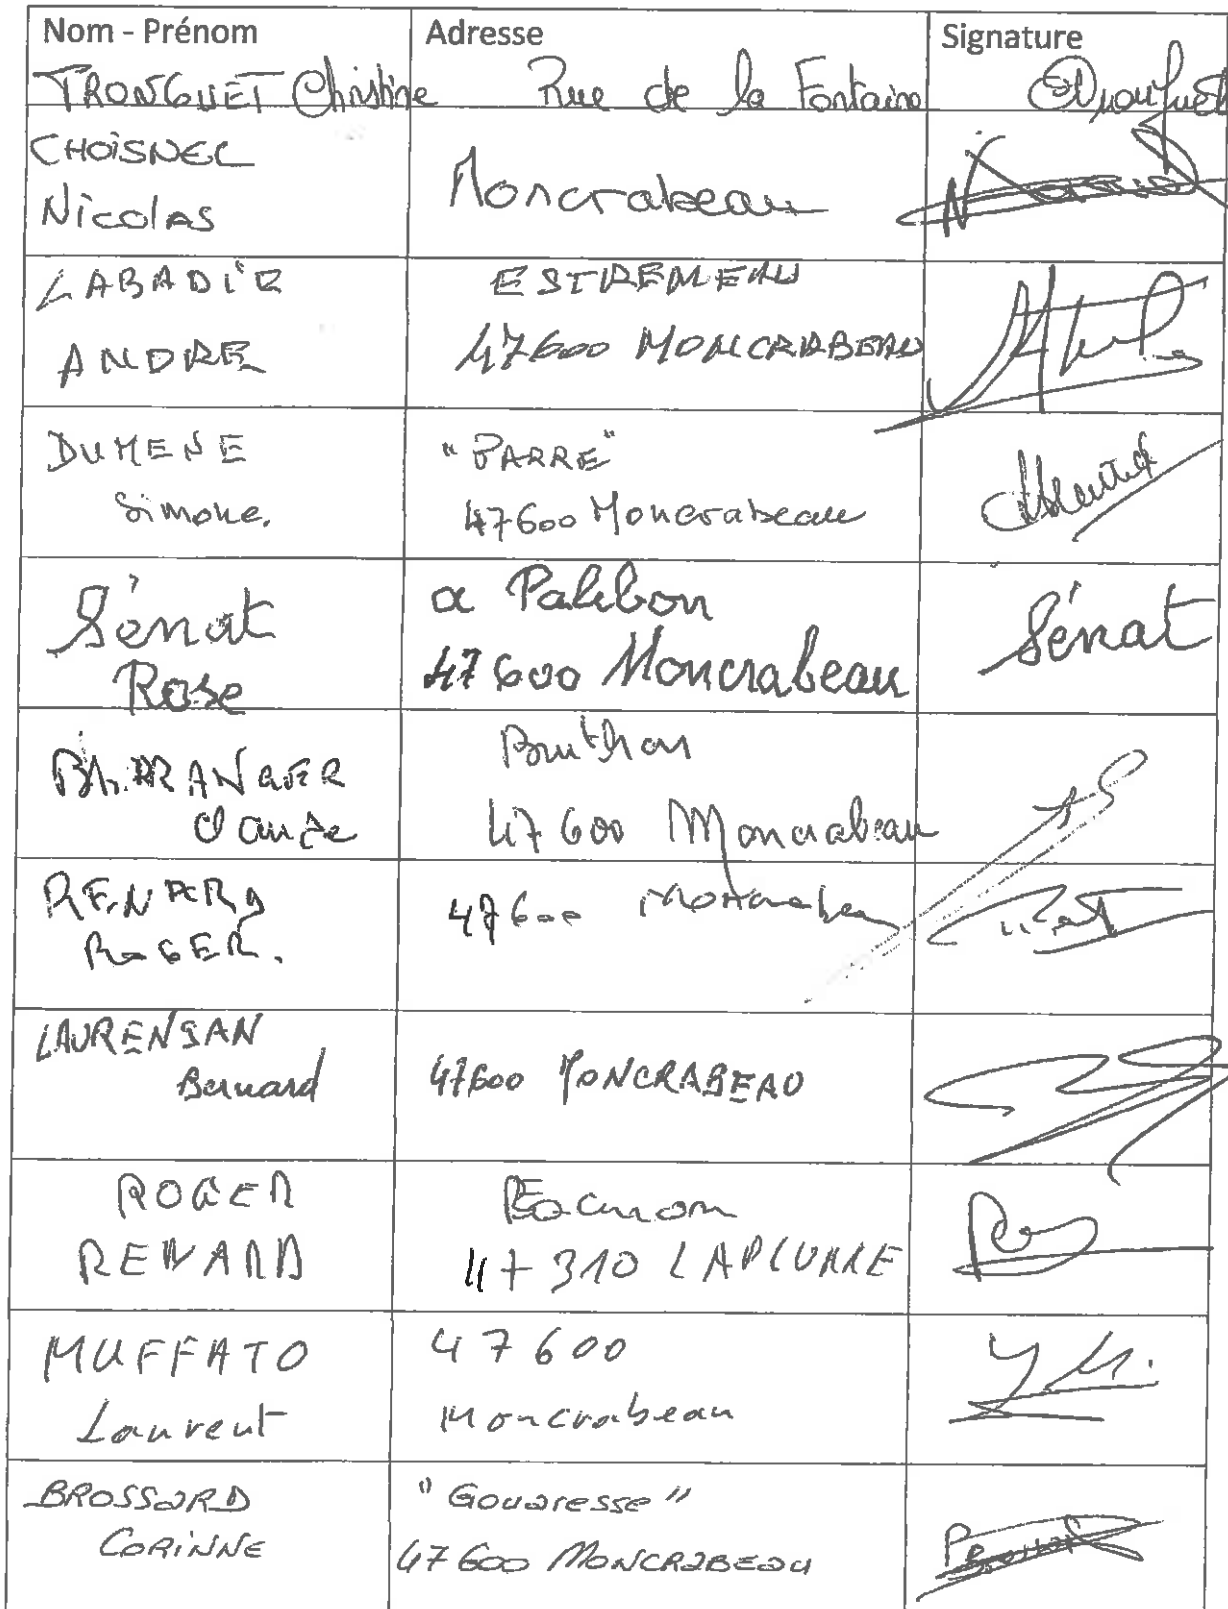 Nom - Prénom Adresse Signature
TRONGUET Christine Rue de la Fontaine
CHOISNEL
Nicolas
Moncrabeau
LABADIE
ANDRE
ESTREMEAU
47600 MONCRABEAU
DUMENE
Simone.
"PARRE"
47600 Moncrabeau
Sénat
Rose
a Palibon
47600 Moncrabeau
Sénat
47600 Moncrabeau
RENARD
ROGER.
47600 Moncrabeau
LAURENSAN
Bernard
47600 MONCRABEAU
ROGER
RENARD
47310 LAPLUME
MUFFATO
Laurent
47600
Moncrabeau
BROSSARD
CORINNE
"Gouaresse"
47600 MONCRABEAU